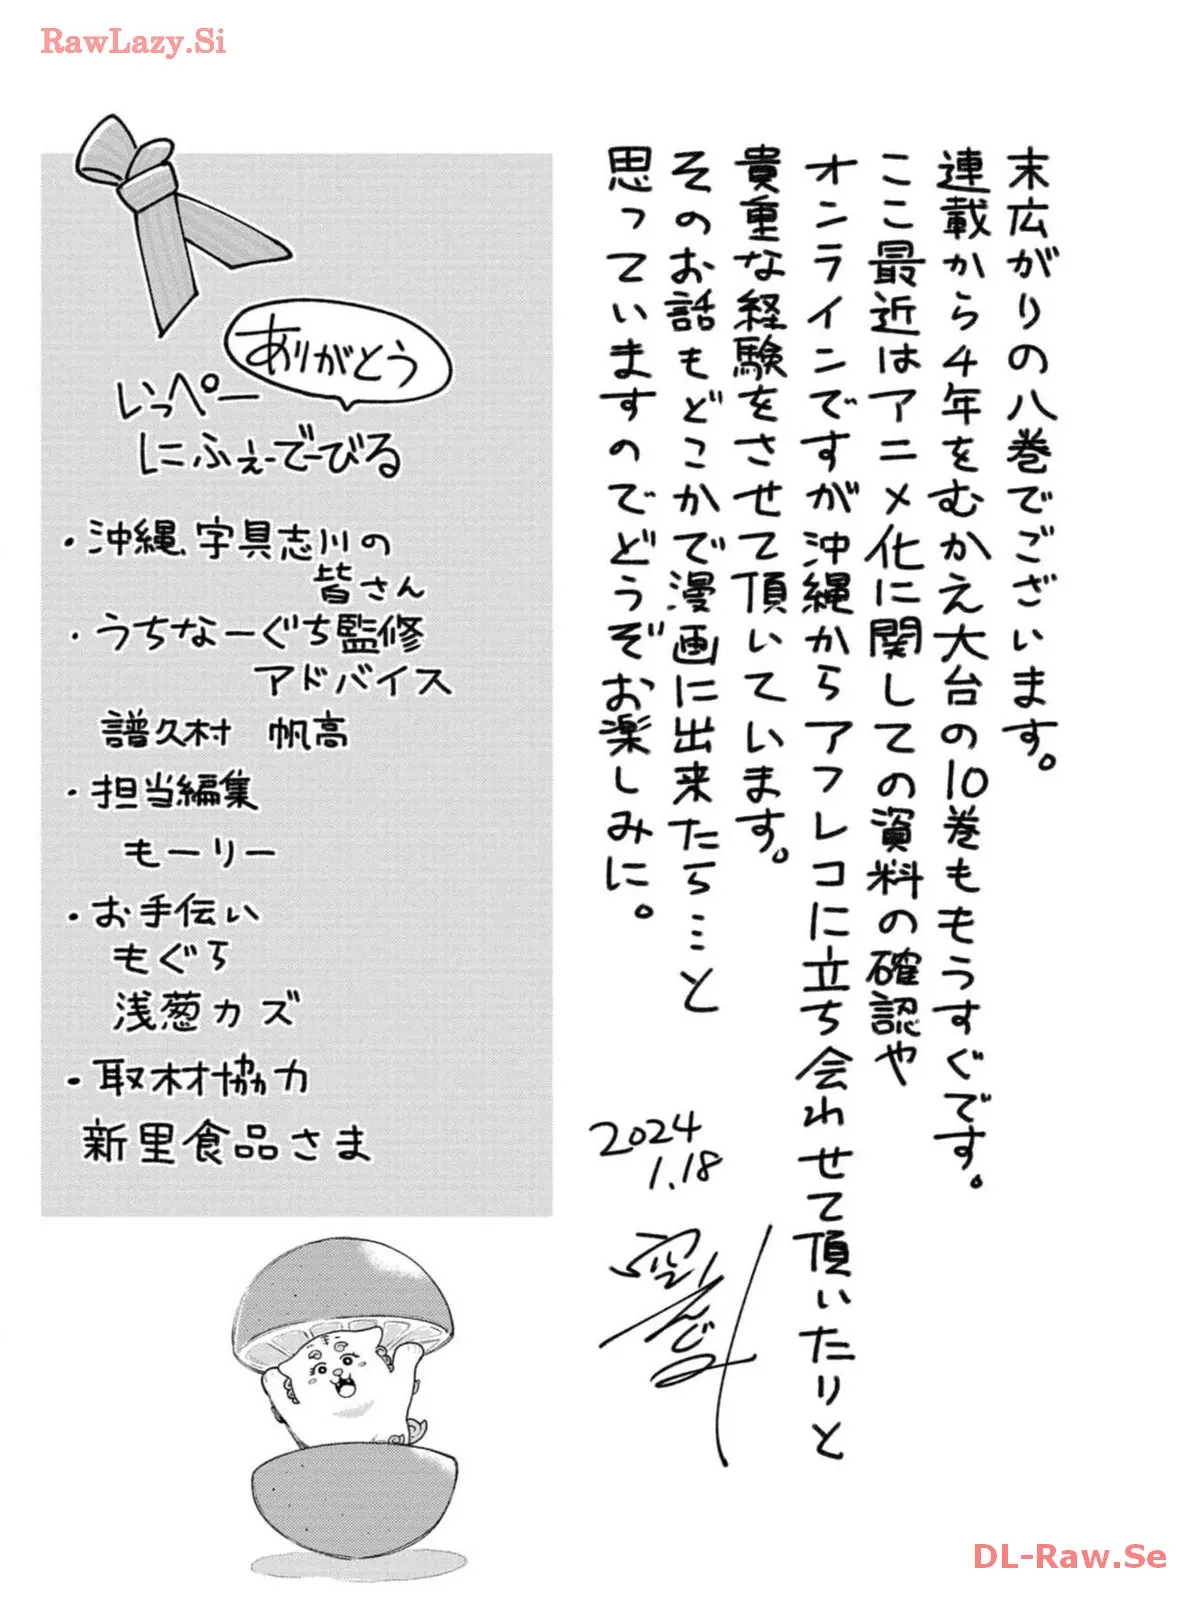 RawLazy.Si
末広がりの八巻でございます。
連載から4年をむかえ大台の10巻ももうすぐです。
ここ最近はアニメ化に関しての資料の確認や
オンラインですが沖縄からアフレコに立ち会わせて頂いたりと
貴重な経験をさせて頂いています。
そのお話もどこかで漫画に出来たら…と
思っていますのでどうぞお楽しみに。
2024
1.18
ありがとう
いっぺー
にふぇーでーびる
・沖縄、宇具志川の
皆さん
・うちなーぐち監修
アドバイス
譜久村 帆高
・担当編集
もーリー
・お手伝い
もぐら
浅葱カズ
・取材協力
新里食品さま
DL-Raw.Se